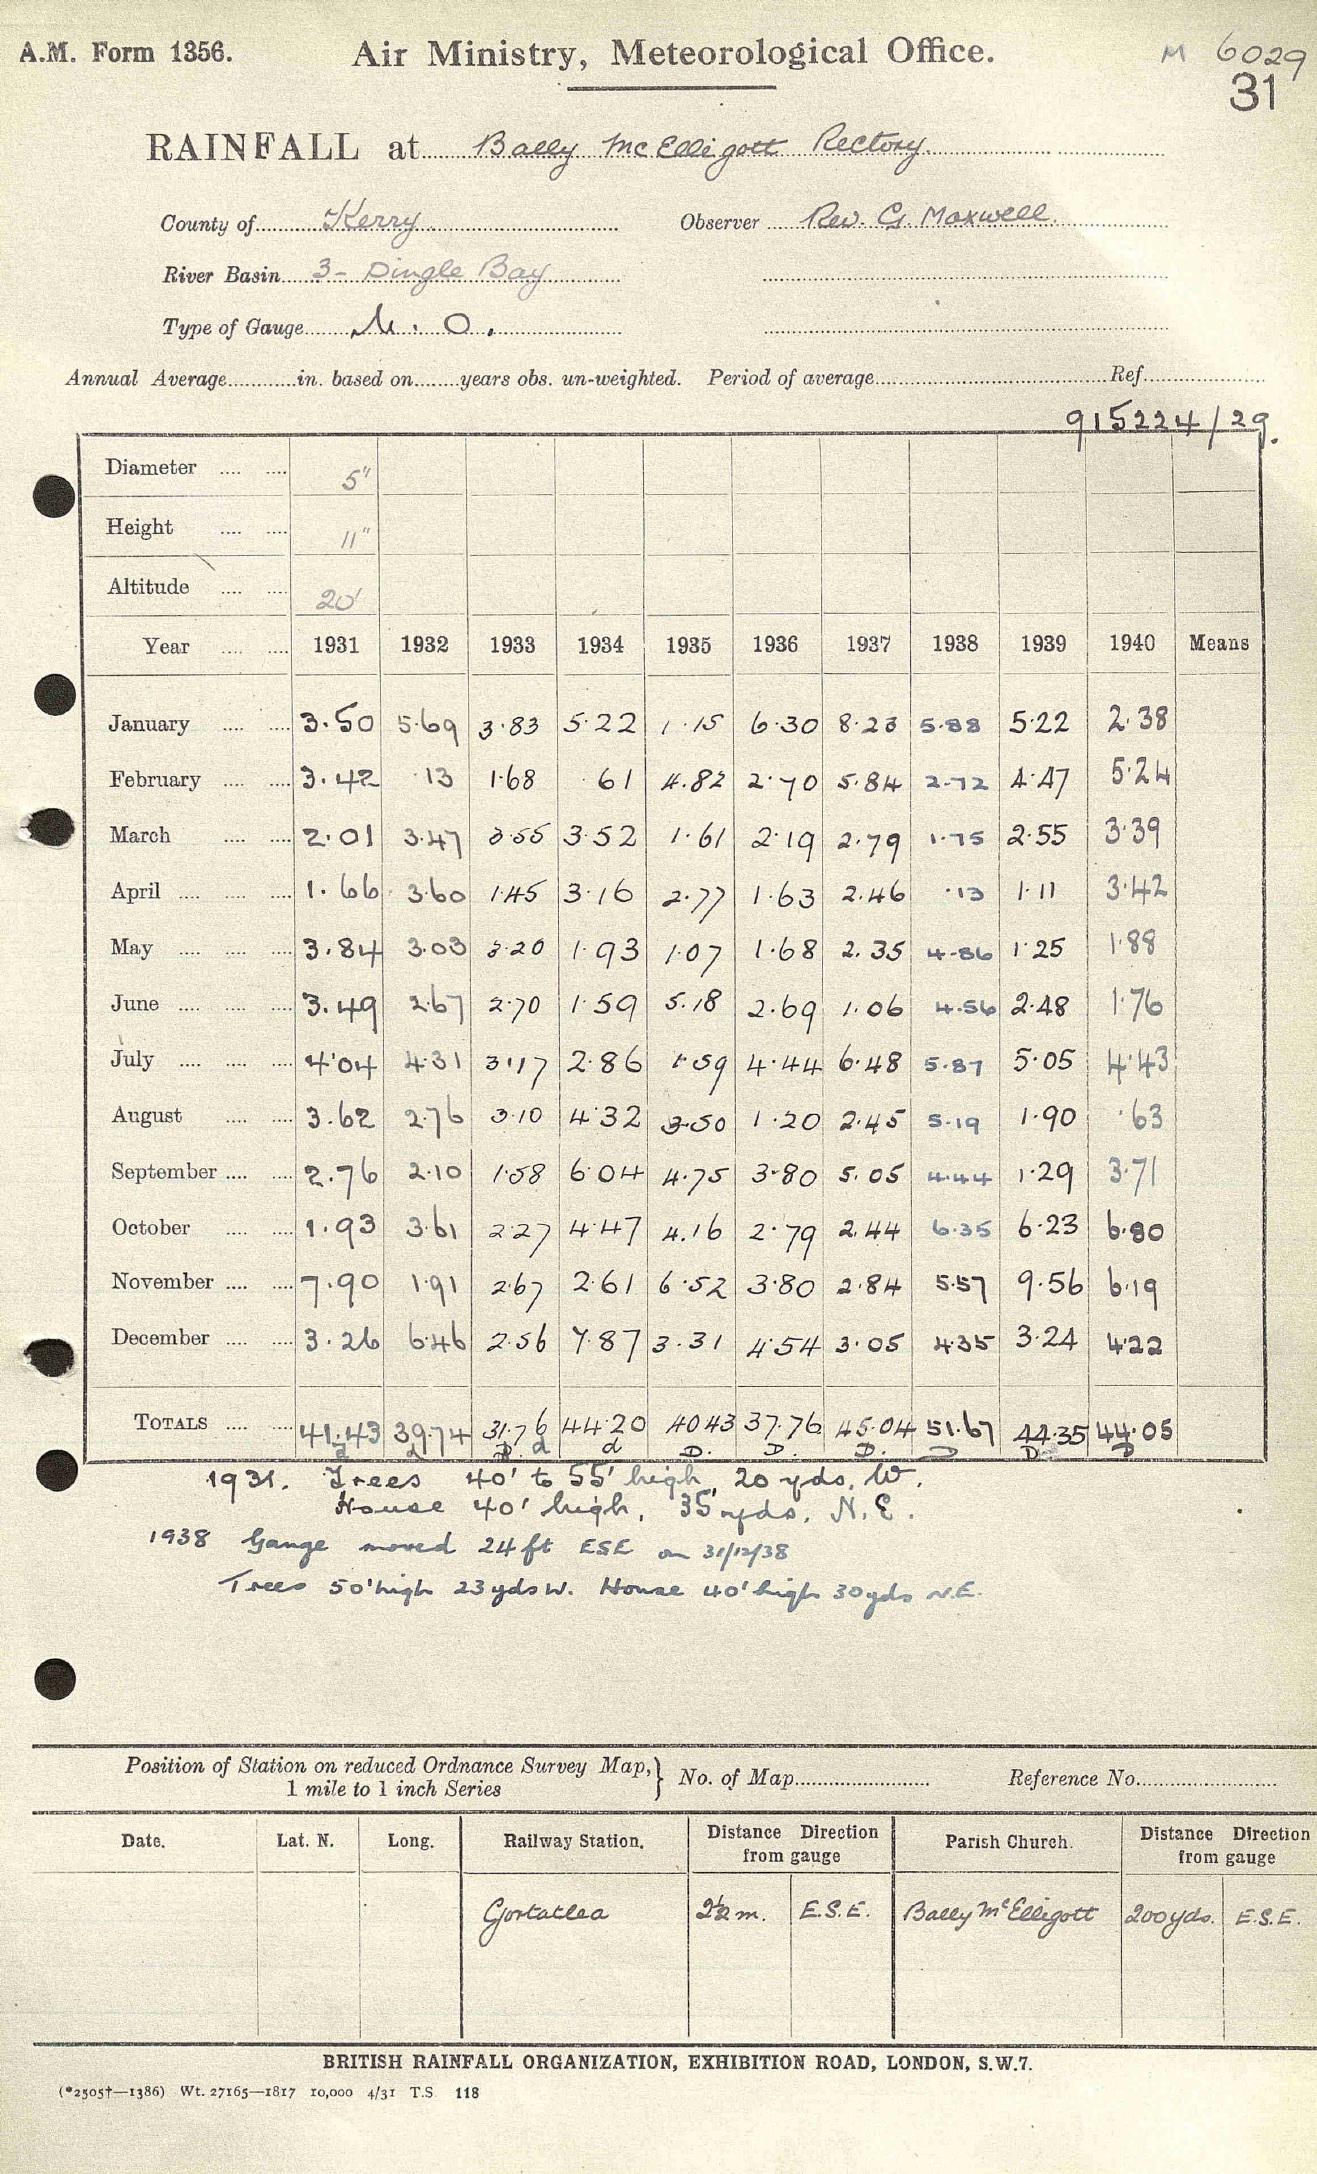 A.M. Form 1356. Air Ministry, Meteorological Office. M 6029
31
RAINFALL at Bally McElligott Rectory
County of Kerry Observer Rev. G. Maxwell.
River Basin 3 - Dingle Bay
Type of Gauge M. O.
Annual Average in. based on years obs. un-weighted. Period of average Ref
915224/29.
Diameter 5"
Height 11"
Altitude 20'
Year 1931 1932 1933 1934 1935 1936 1937 1938 1939 1940 Means
January 3.50 5.69 3.83 5.22 1.15 6.30 8.23 5.88 5.22 2.38
February 3.42 .13 1.68 .61 4.82 2.70 5.84 2.72 4.47 5.24
March 2.01 3.47 3.55 3.52 1.61 2.19 2.79 1.75 2.55 3.39
April 1.66 3.60 1.45 3.16 2.77 1.63 2.46 .13 1.11 3.42
May 3.84 3.03 3.20 1.93 1.07 1.68 2.35 4.86 1.25 1.88
June 3.49 2.67 2.70 1.59 5.18 2.69 1.06 4.56 2.48 1.76
July 4.04 4.31 3.17 2.86 1.59 4.44 6.48 5.87 5.05 4.43
August 3.62 2.76 3.10 4.32 3.50 1.20 2.45 5.19 1.90 .63
September 2.76 2.10 1.58 6.04 4.75 3.80 5.05 4.44 1.29 3.71
October 1.93 3.61 2.27 4.47 4.16 2.79 2.44 6.35 6.23 6.80
November 7.90 1.91 2.67 2.61 6.52 3.80 2.84 5.57 9.56 6.19
December 3.26 6.46 2.56 7.87 3.31 4.54 3.05 4.35 3.24 4.22
TOTALS 41.43 39.74 31.76 44.20 40.43 37.76 45.04 51.67 44.35 44.05
D. d d D. D. D. D D D
1931. Trees 40' to 55' high, 20 yds, W.
House 40' high, 35 yds, N.E.
1938 Gauge moved 24 ft ESE on 31/12/38
Trees 50' high 23 yds W. House 40' high 30 yds N.E.
Position of Station on reduced Ordnance Survey Map, 1 mile to 1 inch Series } No. of Map Reference No.
Date. Lat. N. Long. Railway Station. Distance Direction from gauge Parish Church. Distance Direction from gauge
Gortatlea 2½ m. E.S.E. Bally McElligott 200 yds. E.S.E.
BRITISH RAINFALL ORGANIZATION, EXHIBITION ROAD, LONDON, S.W.7.
(*2505†—1386) Wt. 27165—1817 10,000 4/31 T.S. 118